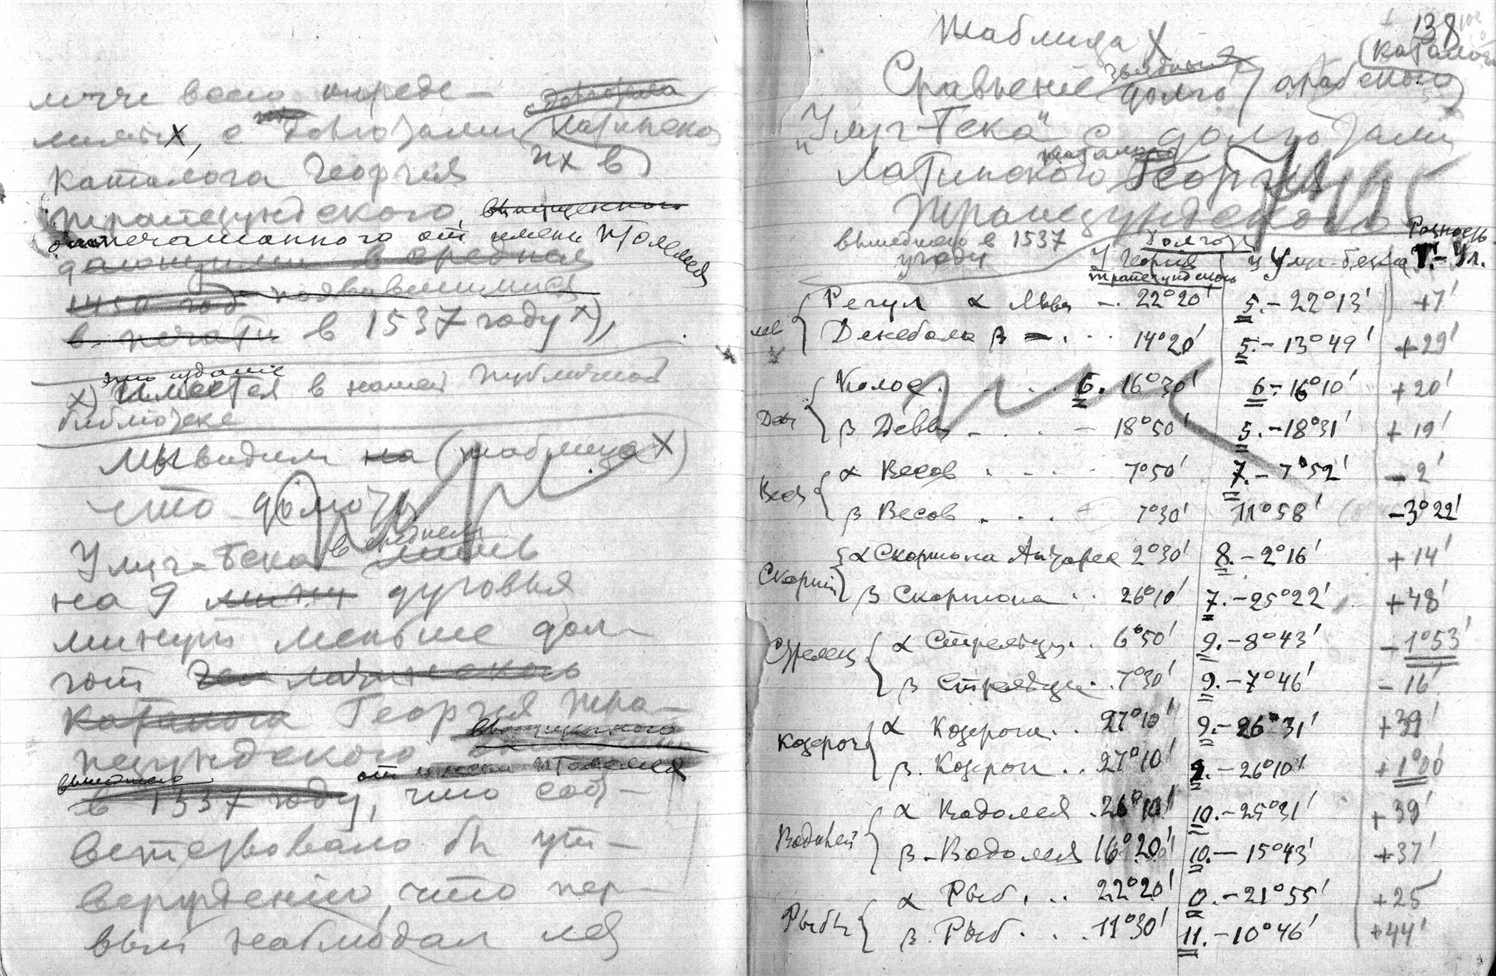 лучше всего опреде-
лимых, с долготами
Латинско
их в)
каталога Георгия
Трапезундского, выпущенного
отпечатанного от имени Птолемея
дающими в средная
1450 год появившимися
в печати в 1537 году х),
это издание
х) Имеется в нашей Публичной
библиотеке
Мы видим на (таблица X)
что долготы
в среднем
Улуг-Бека лишь
на 9 дуговых
минут меньше дол-
гот чем латинского
каталога Георгия Тра-
пезундского выпущенного
вышедшего от имени Птолемея
в 1537 году, что соот-
ветствовало бы ут-
верждению, что пер-
вый наблюдал на
138
Таблица X
(каталога
Сравнение звездных
долгот арабского
"Улуг-Бека" с долготами
каталога
Латинского Георгия
Трапезундского
вышедшего в 1537
году
Долгота
У Георгия
Трапезундского
у Улуг-Бека
Разность
Г.-Ул.
Лев
Регул α Льва 22°20' 5.-22°13' +7'
Денебола β 14°20' 5.-13°49' +29'
Дева
Колос 6. 16°30' 6-16°10' +20'
β Девы 18°50' 5.-18°31' +19'
Весы
α Весов 7°50' 7.-7°52' -2'
β Весов 7°30' 11°58' -3°22'
Скорпион
α Скорпиона Антарес 2°30' 8.-2°16' +14'
β Скорпиона 26°10' 7.-25°22' +48'
Стрелец
α Стрельца 6°50' 9.-8°43' -1°53'
β Стрельца 7°30' 9.-7°46' -16'
Козерог
α Козерога 27°10' 9.-26°31' +39'
β. Козерог 27°10' 9.-26°10' +1°00'
Водолей
α Водолея 26°10' 10.-25°31' +39'
β-Водолея 16°20' 10.-15°43' +37'
Рыбы
α Рыб 22°20' 0.-21°55' +25'
β. Рыб 11°30' 11.-10°46' +44'